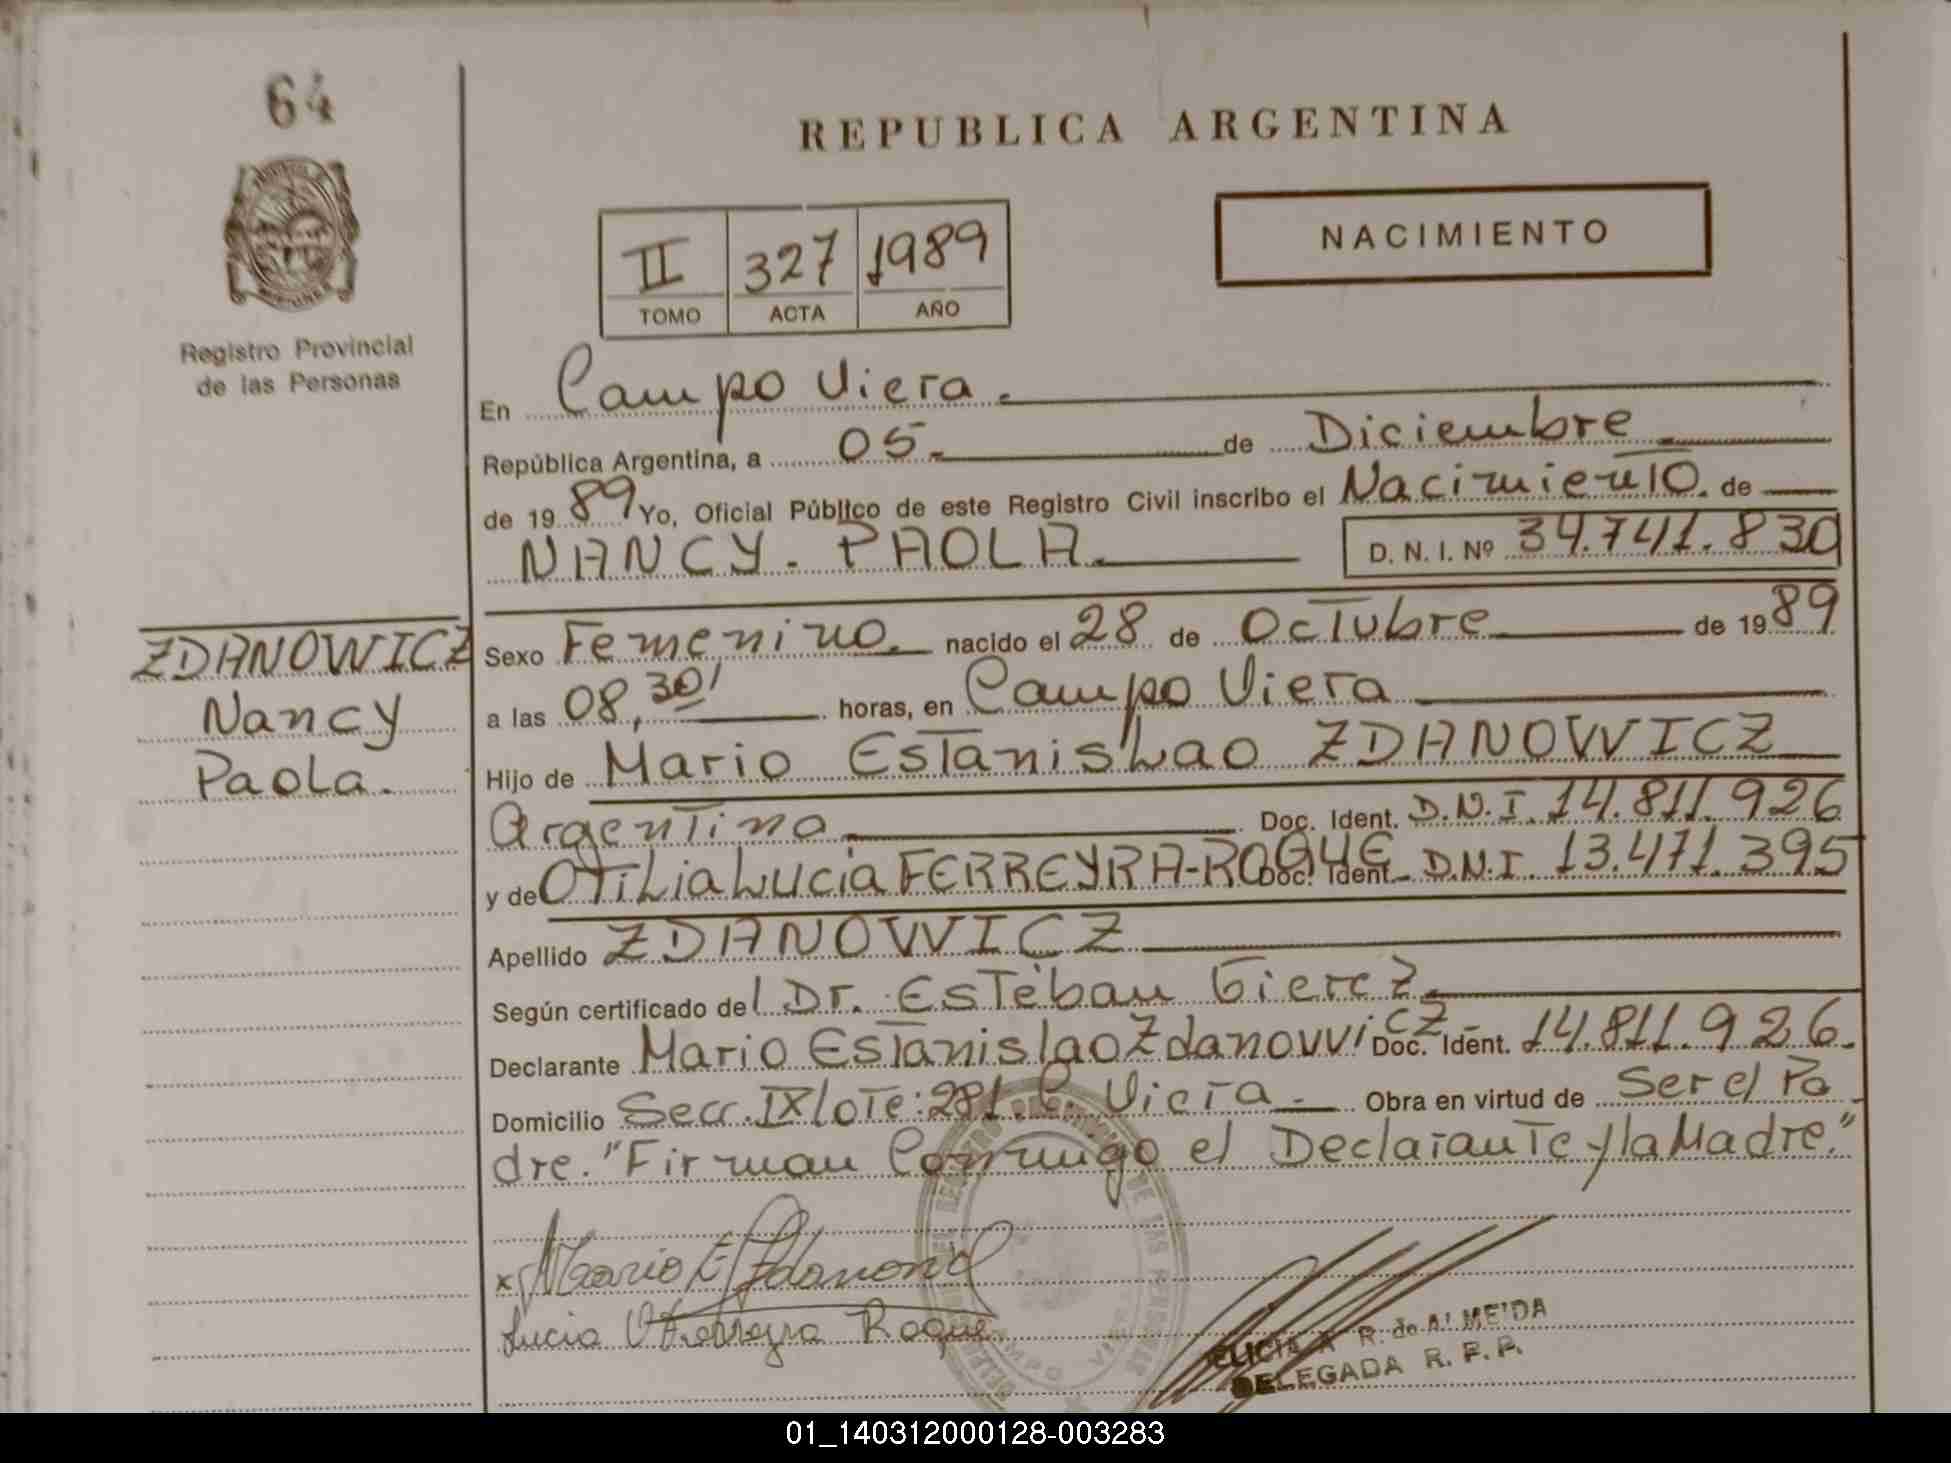 64
REPUBLICA ARGENTINA
NACIMIENTO
II 327 1989
TOMO ACTA AÑO
Registro Provincial
de las Personas
En Campo Viera.
República Argentina, a 05 de Diciembre
de 1989 Yo, Oficial Público de este Registro Civil inscribo el Nacimiento. de
NANCY - PAOLA. D. N. I. Nº 34.741.830
ZDANOWICZ
Nancy
Paola.
Sexo Femenino. nacido el 28 de Octubre de 1989
a las 08,30' horas, en Campo Viera
Hijo de Mario Estanislao ZDANOWICZ
Argentino Doc. Ident. D.N.I. 14.811.926
y de Otilia Lucia FERREYRA-ROQUE Doc. Ident. D.N.I. 13.471.395
Apellido ZDANOWICZ
Según certificado del Dr. Esteban Gierez.
Declarante Mario Estanislao Zdanowicz Doc. Ident. 14.811.926.
Domicilio Secc. IX lote: 281. C. Viera. Obra en virtud de Ser el Pa
dre. "Firman Conmigo el Declarante y la Madre."
x Mario E. Zdanowicz
Lucia O Ferreyra Roque
ELICIA A R. de ALMEIDA
DELEGADA R. P. P.
01_140312000128-003283